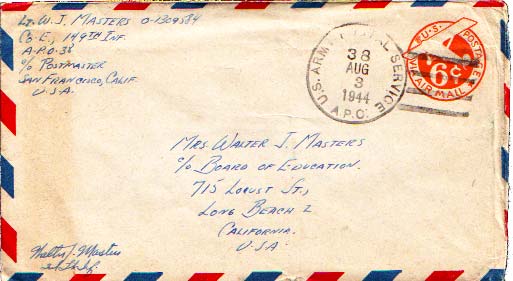 Lt. W. J. Masters O-1309584
Co-E, 149th Inf.
A.P.O. 38
c/o Postmaster
San Francisco, Calif.
U.S.A.
U.S. ARMY POSTAL SERVICE
38
AUG
3
1944
A.P.O.
U.S. POSTAGE
6¢
VIA AIR MAIL
Mrs. Walter J. Masters
c/o Board of Education.
715 Locust St.,
Long Beach 2
California.
U.S.A.
Walter J. Masters